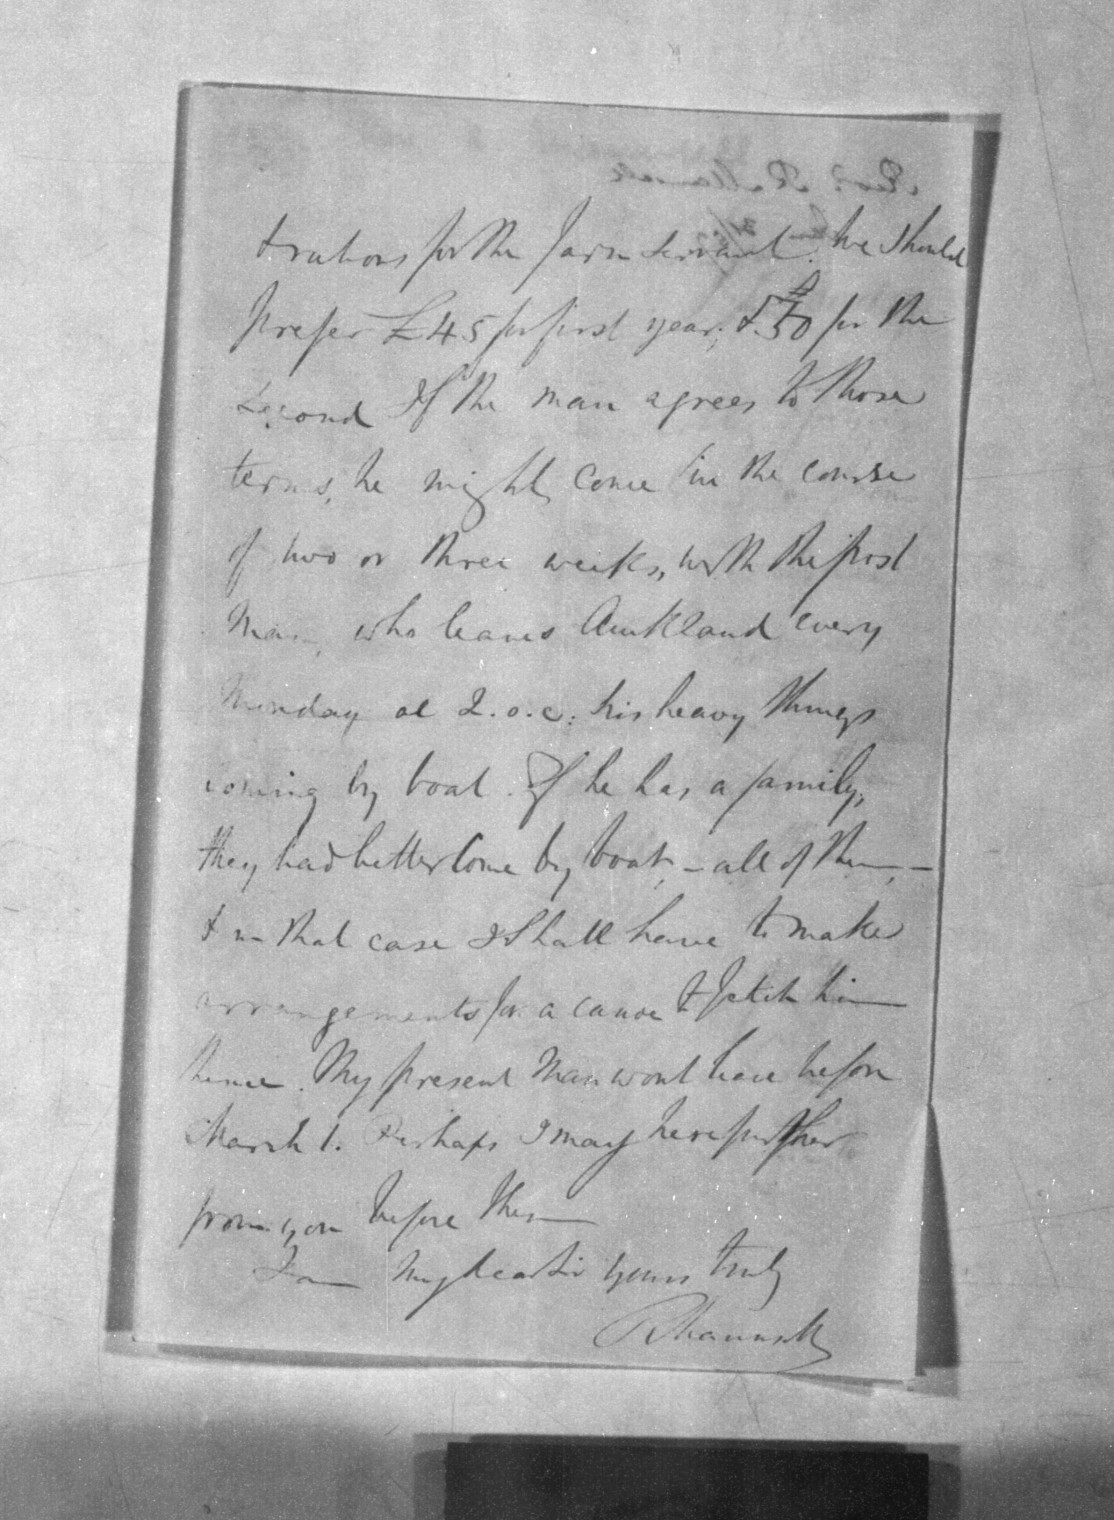 trations for the farm servant. We should
prefer £45 for first year, & £50 for the
second If the man agrees to those
terms, he might come in the course
of two or three weeks, with the post
man, who leaves Auckland every
Monday at 2.o.c: his heavy things
coming by boat. If he has a family,
they had better come by boat, – all of them, –
& in that case I shall have to make
arrangements for a canoe to fetch him
hence. My present man wont leave before
March 1. Perhaps I may here further
from you before then
I am My dear Sir Yours truly
R Maunsell
Revd. R. Maunsell